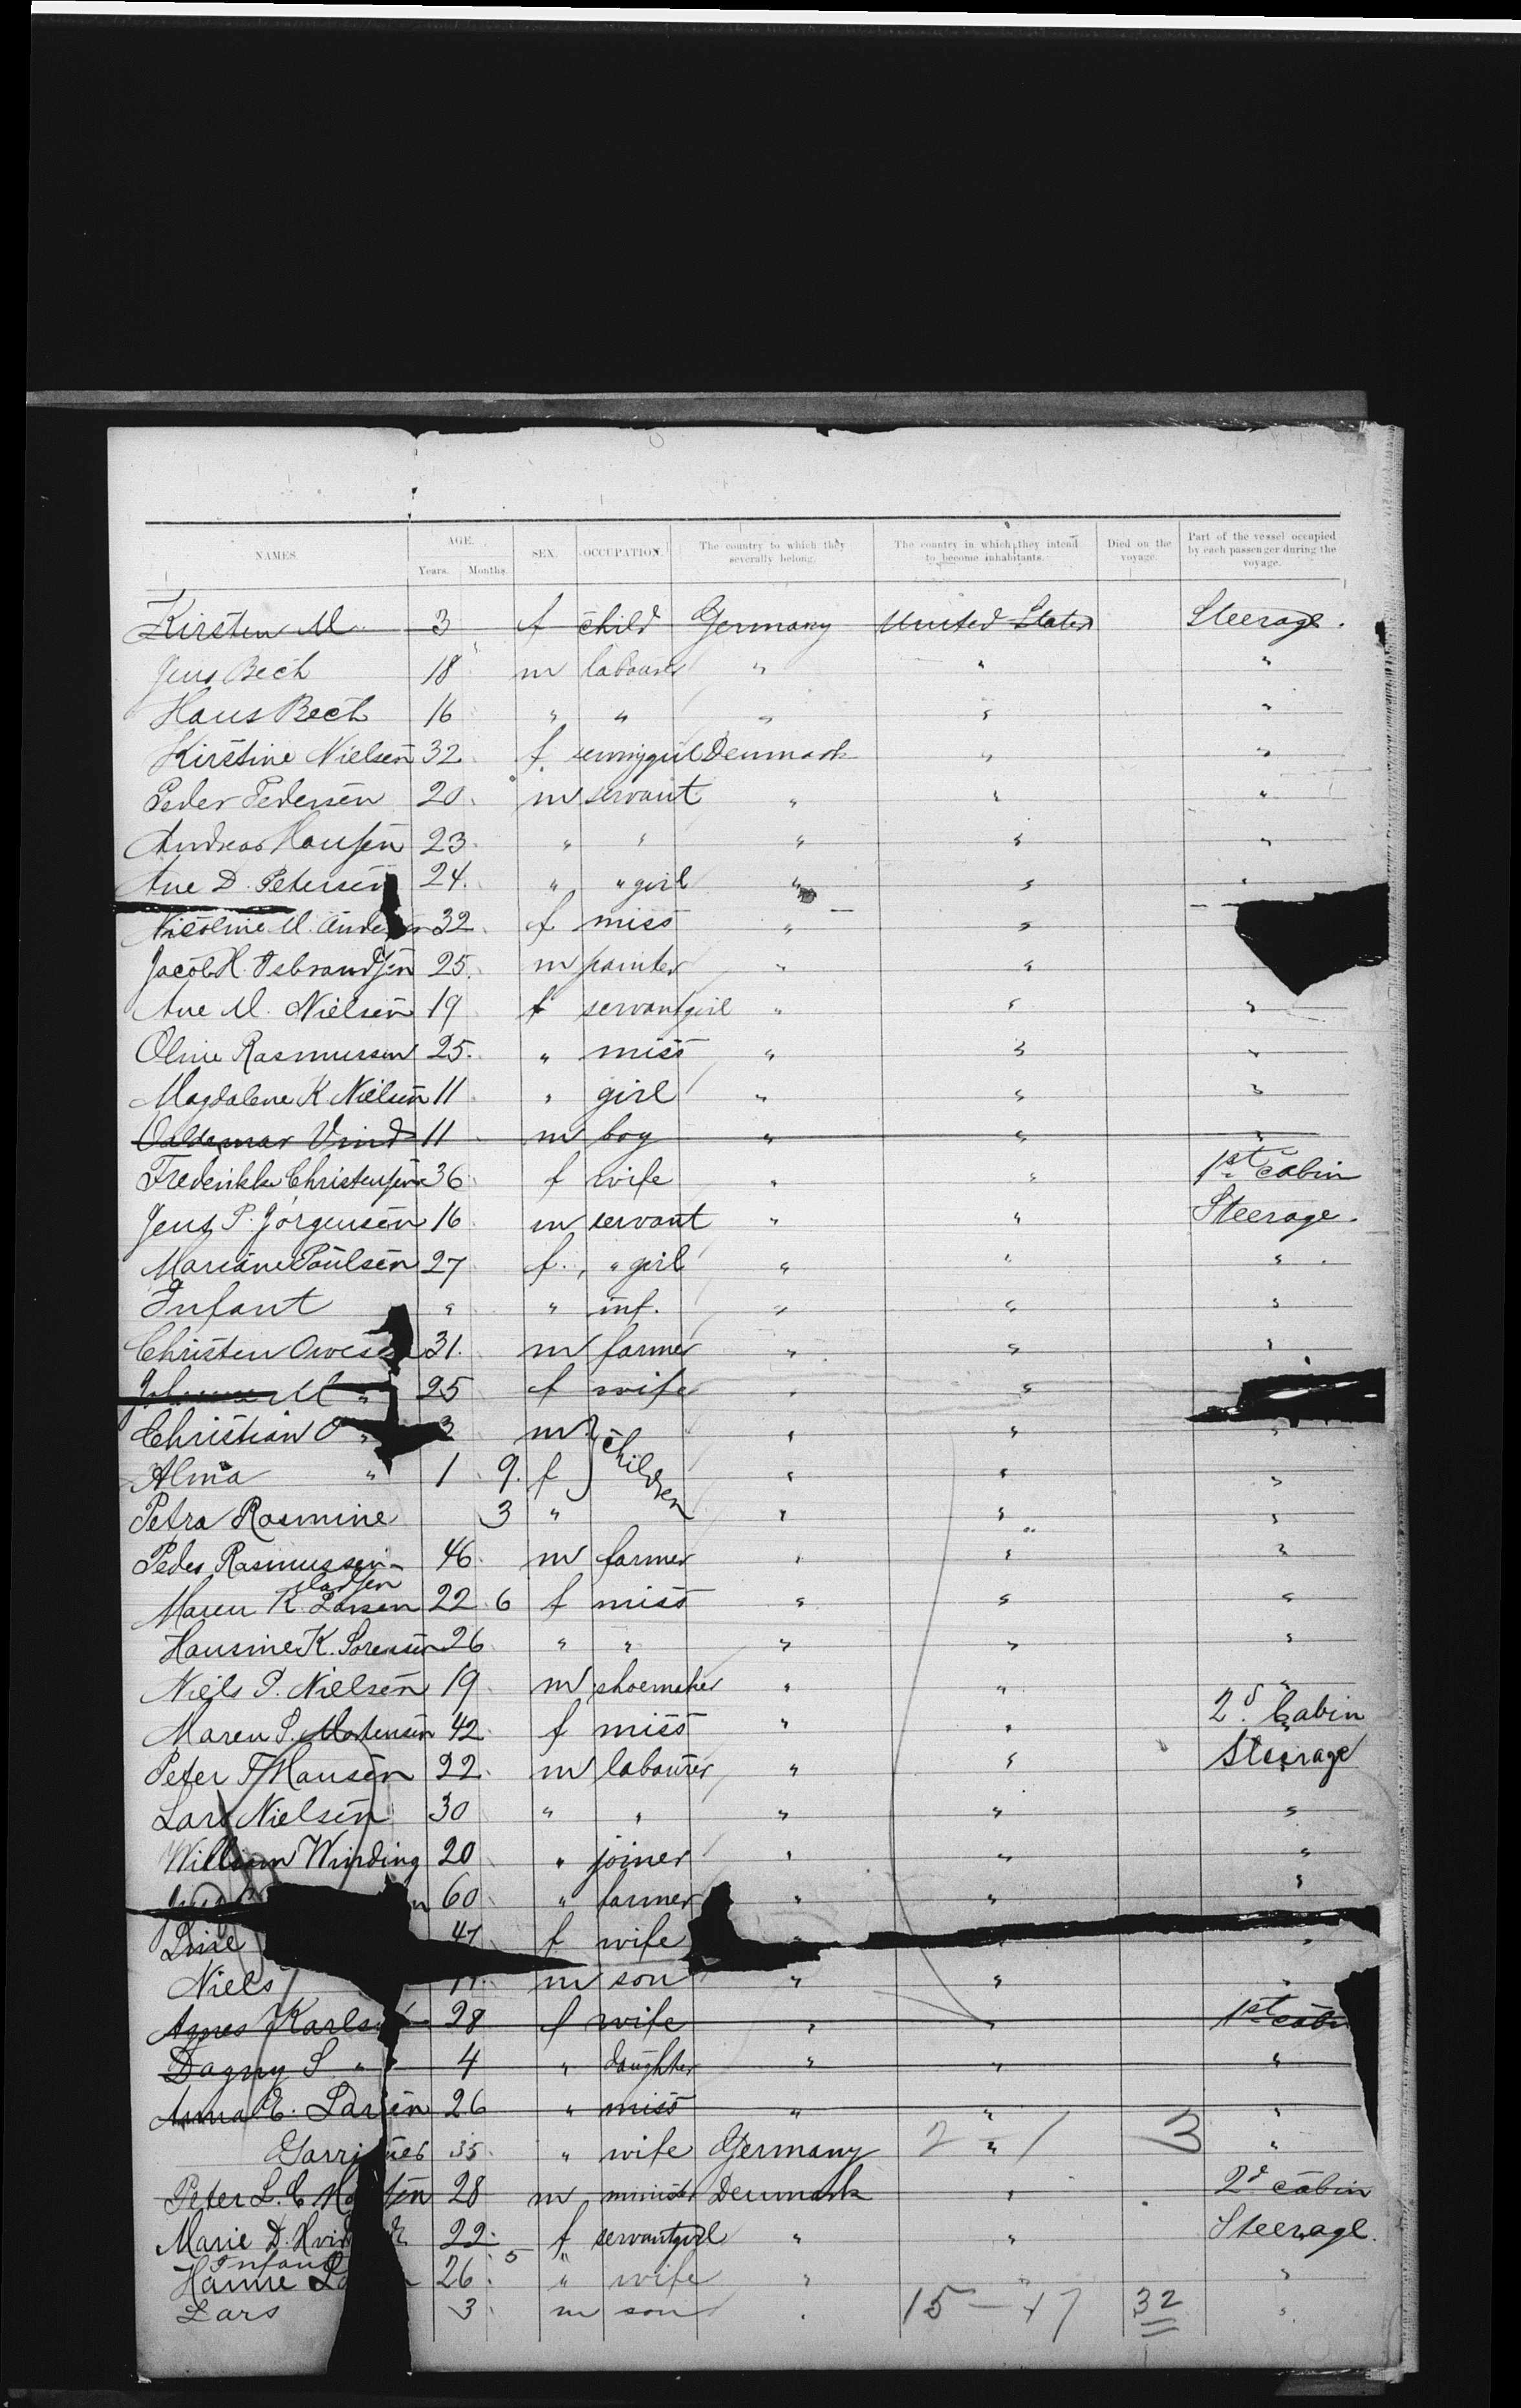 NAMES. AGE. Years. Months. SEX. OCCUPATION. The country to which they severally belong. The country in which they intend to become inhabitants. Died on the voyage. Part of the vessel occupied by each passenger during the voyage.
Kirsten M 3 f child Germany United States Steerage.
Jens Bech 18 m labourer " " "
Hans Bech 16 " " " " "
Kirstine Nielsen 32 f. Denmark " "
Peder Pedersen 20 m servant " " "
Andreas Hansen 23 " " " " "
Ane D. Petersen 24. " " girl " " "
Nicoline M. 32 f miss " "
Jacob H. 25. m painter " "
Ane M. Nielsen 19 f servantgirl " " "
Oline Rasmussen 25. " miss " " "
Magdalene K Nielsen 11 " girl " " "
Valdemar Vind 11 m boy " " "
Frederikke Christensen 36 f wife " " 1st cabin
Jens P. Jörgensen 16 m servant " " Steerage.
Mariane Poulsen 27 f. " girl " " "
Infant " " inf. " " "
Christen 31. m farmer " " "
M " 25 f wife " "
Christian O " 3 m children " " "
Alma " 1 9. f " " "
Petra Rasmine 3 " " " "
Peder Rasmussen 46 m farmer " " "
Madsen
Maren K. Larsen 22 6 f miss " " "
Hansine K. Sorensen 26 " " " " "
Niels P. Nielsen 19 m shoemaker " " "
Maren S. Mortensen 42 f miss " " 2d. Cabin
Peter T Hansen 22 m labourer " " Steerage
Lars Nielsen 30 " " " " "
William Winding 20 " joiner " " "
60 " farmer " " "
Line 47 f wife " " "
Niels 11. m son " " "
Agnes Karls 28 f wife " " 1st cabi
Dagny S " 4 " daughter " " "
Anna E. Larsen 26 " miss " " "
35 " wife Germany " 2 - 1 3 "
Peter L. C 28 m minister Denmark " 2d cabin
Marie D. 22. f servantgirl " " Steerage.
Infant 5 "
Hanne La 26. " wife " " "
Lars 3 m son " 15 - 17 32 "